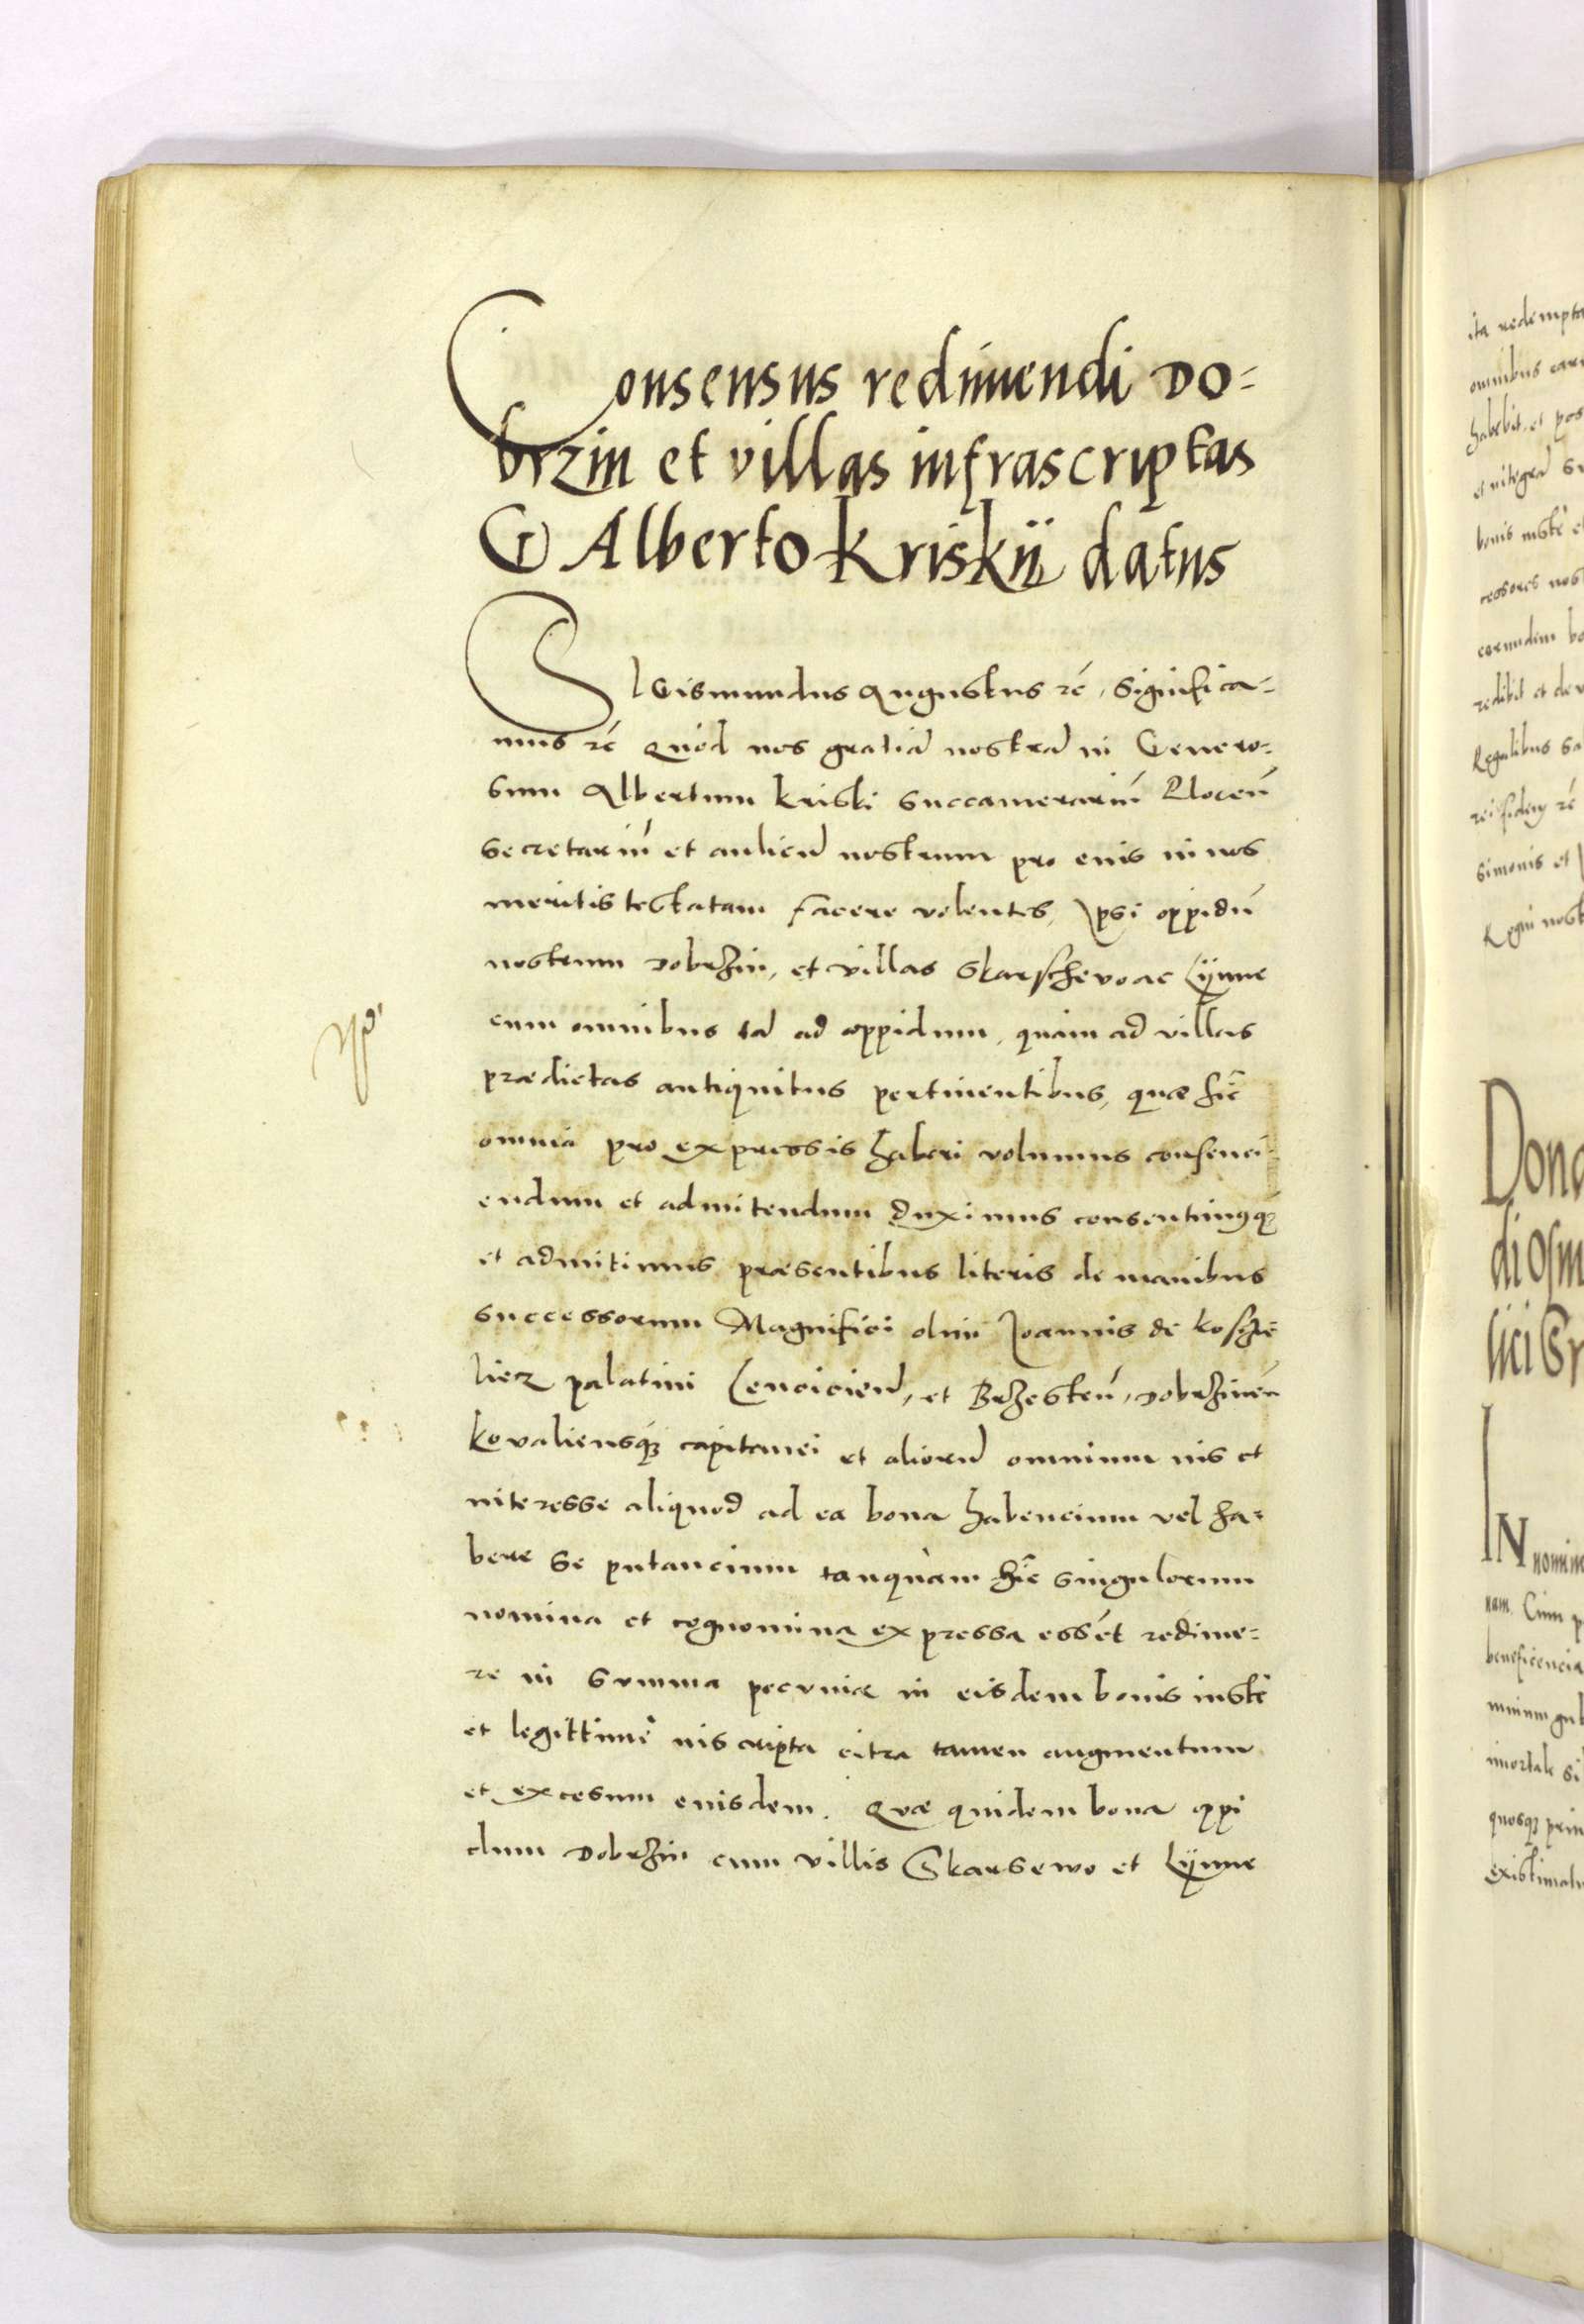 Consensus redimendi Do=
brzin et villas infrascriptas
G Alberto Kriskij datus
SIGismundus Augustus rc̄, Significa=
mus rc̄ Quod nos gratiã nostrã in Genero=
sum Albertum kriski succamerariū Plocen̄
secretariū et aulicũ nostrum pro eius in nos
meritis testatam facere volentes, Ipsi oppidū
nostrum Dobrzin, et villas Skarschevo ac Lÿnne
cum omnibus tã ad oppidum, quàm ad villas
prædictas antiquitus pertinentibus, quæ hîc
omnia pro expressis haberi volumus consenci=
endum et admitendum duximus consentimꝰqꝫ
et admitimus præsentibus literis de manibus
successorum Magnifici olim Joannis de koscie
liecz palatini Lencicieñ, et Brzesten̄, Dobrzineñ
kovaliensqꝫ capitanei et aliorũ omnium ius et
interesse aliquod ad ea bona habencium vel ha=
bere se putancium tanquàm hîc singulorum
nomina et cognomina expressa essēt redime=
re in summa pecuniæ in eisdem bonis iustè
et legittimè inscripta citra tamen augmentum
et excesum eiusdem. Quæ quidem bona oppi
dum Dobrzin cum villis Skarsewo et Lÿnne
ita redempta
omnibus
habebit, et pos
bonis iustè et
cessores nost
eorundem bo
redibit et dev
Regalibus sa
rei fidem rc̄
simonis et
Regni nost
Dona
di Osm
lici Gr
IN nomin
nam. Cum p
beneficencia
immortale si
quosqꝫ prin
existimatu